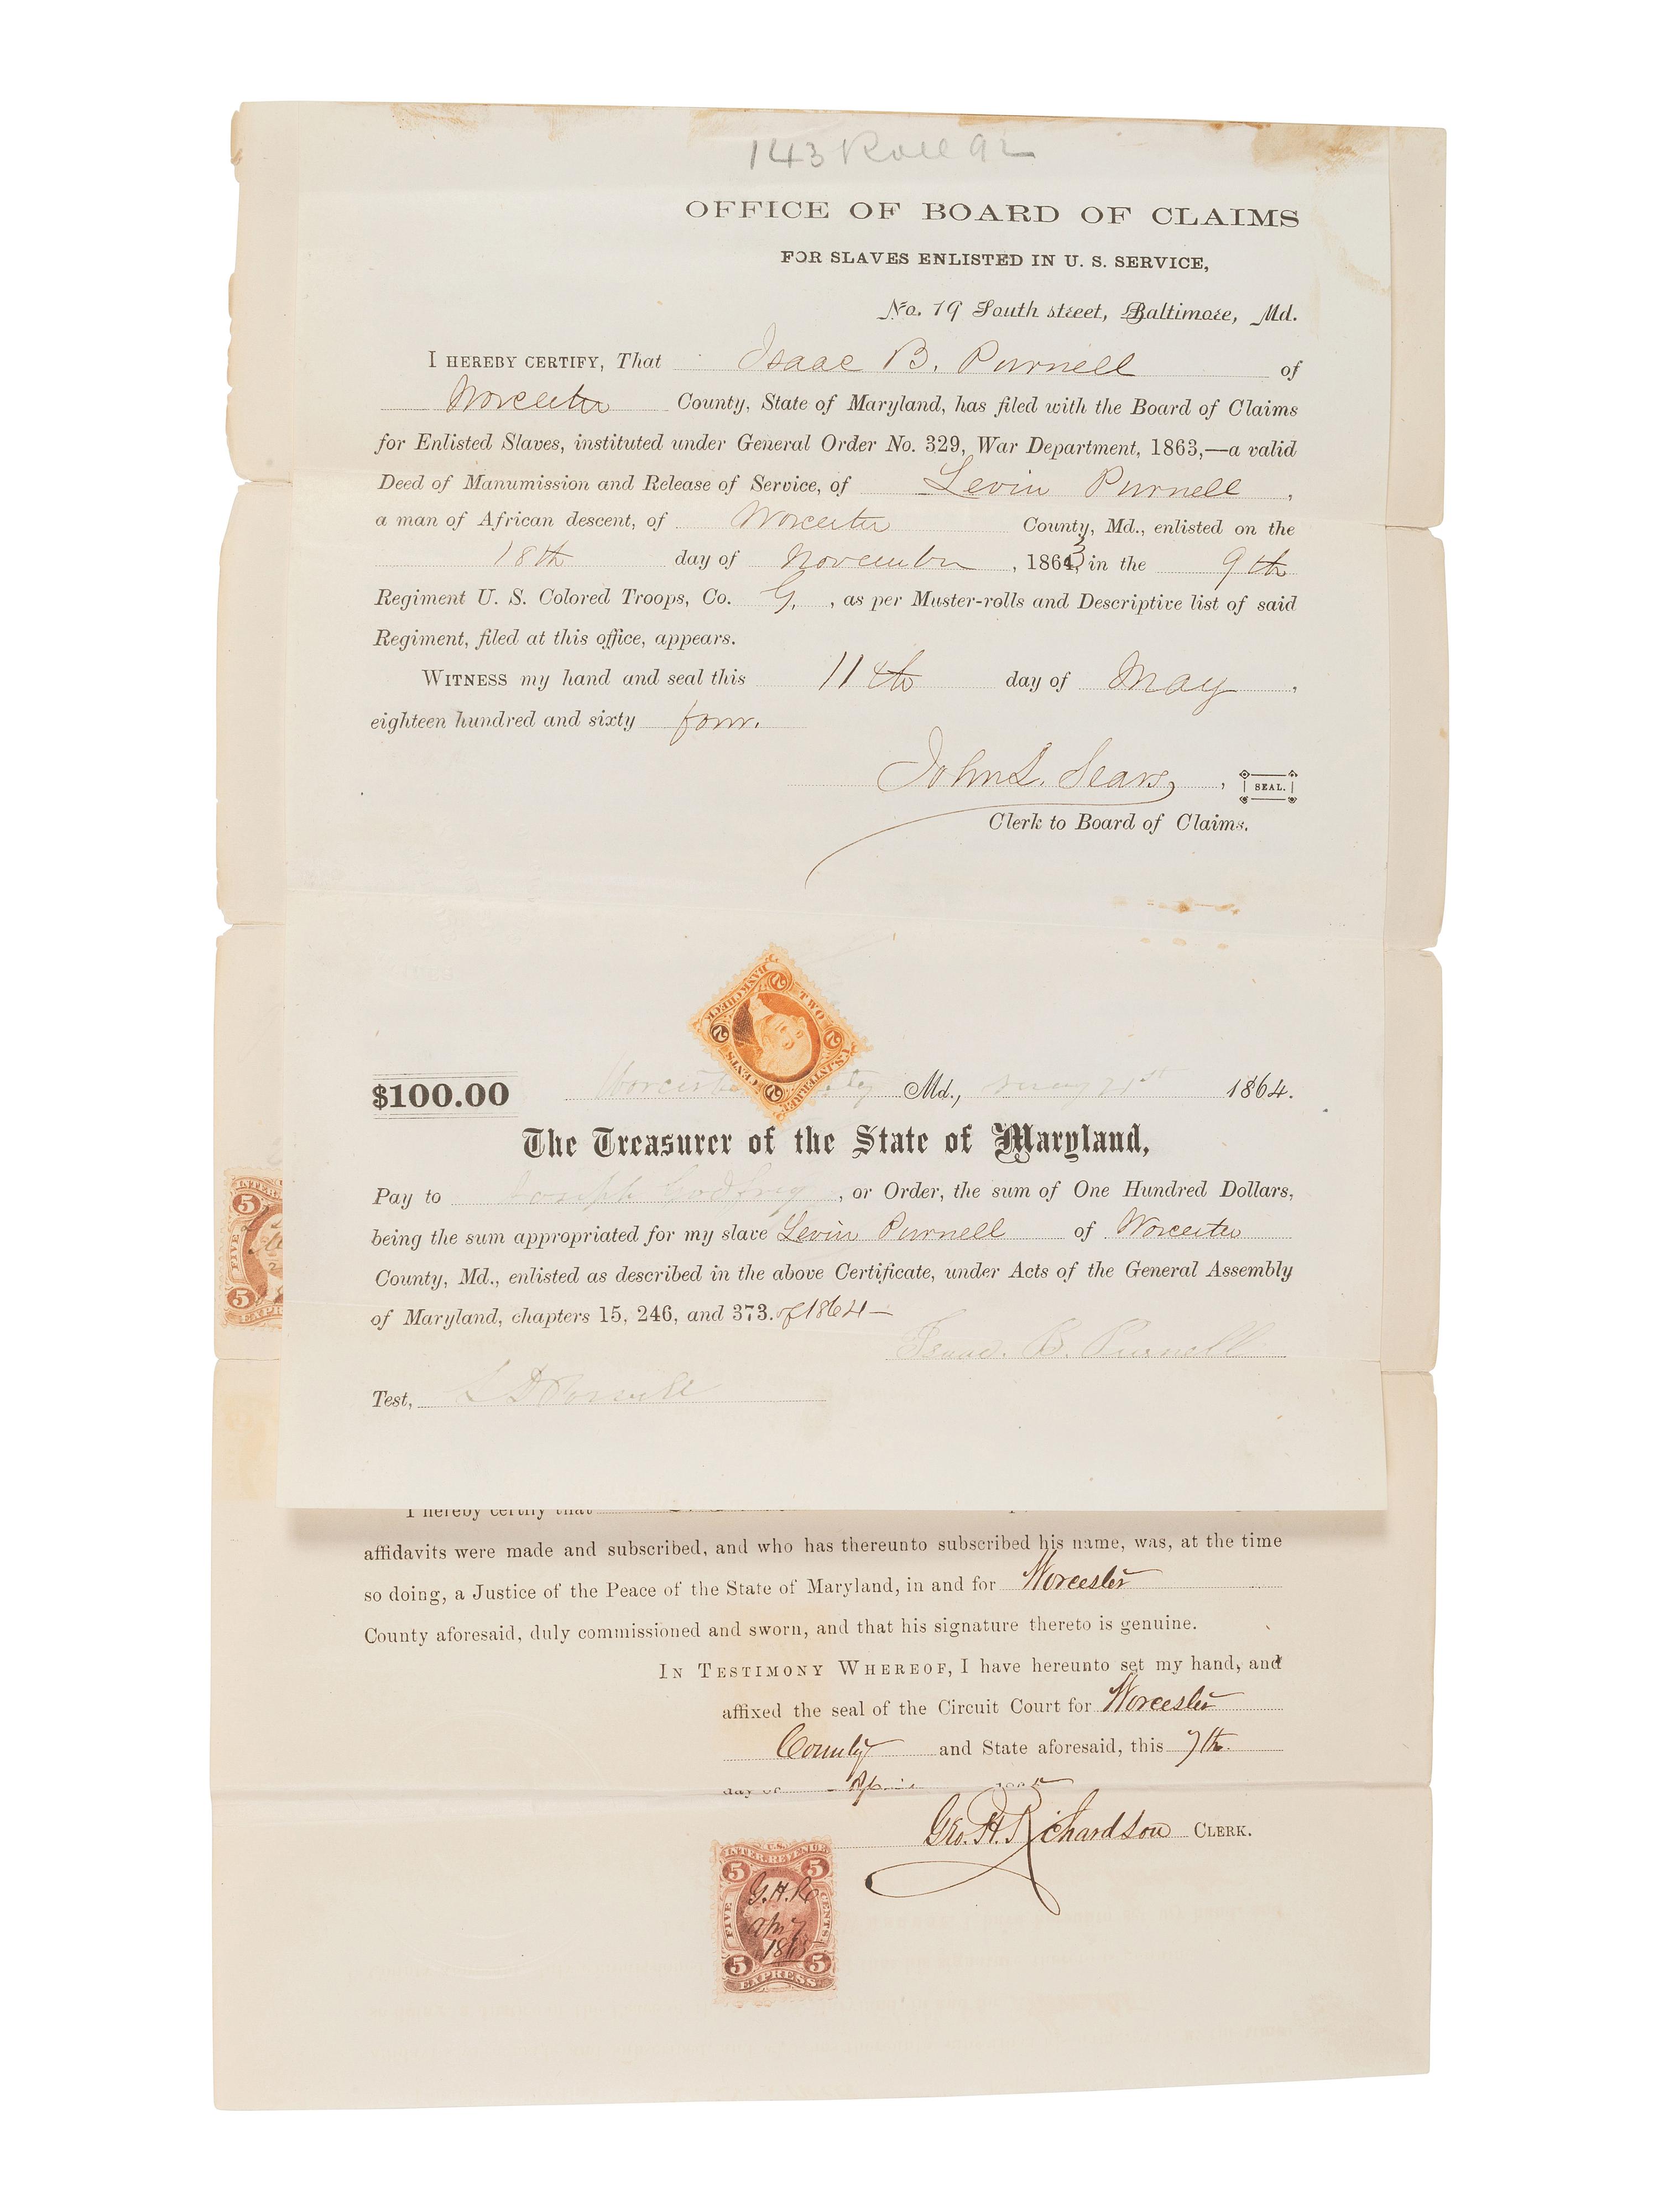 143 Roll 92
OFFICE OF BOARD OF CLAIMS
FOR SLAVES ENLISTED IN U. S. SERVICE,
No. 19 South street, Baltimore, Md.
I HEREBY CERTIFY, That Isaac B. Purnell of
Worcester County, State of Maryland, has filed with the Board of Claims
for Enlisted Slaves, instituted under General Order No. 329, War Department, 1863,—a valid
Deed of Manumission and Release of Service, of Levin Purnell,
a man of African descent, of Worcester County, Md., enlisted on the
18th day of November, 1863, in the 9th
Regiment U. S. Colored Troops, Co. G, as per Muster-rolls and Descriptive list of said
Regiment, filed at this office, appears.
WITNESS my hand and seal this 11th day of May,
eighteen hundred and sixty four.
John L. Sears, SEAL.
Clerk to Board of Claims.
U.S. INTER. REV. 2 2 2 2 BANK CHECK TWO CENTS
$100.00 Worcester Md., 1864.
The Treasurer of the State of Maryland,
Pay to Joseph, or Order, the sum of One Hundred Dollars,
being the sum appropriated for my slave Levin Purnell of Worcester
County, Md., enlisted as described in the above Certificate, under Acts of the General Assembly
of Maryland, chapters 15, 246, and 373. of 1864—
Isaac. B. Purnell
Test,
5
FIVE
5
I hereby certify that
affidavits were made and subscribed, and who has thereunto subscribed his name, was, at the time
so doing, a Justice of the Peace of the State of Maryland, in and for Worcester
County aforesaid, duly commissioned and sworn, and that his signature thereto is genuine.
IN TESTIMONY WHEREOF, I have hereunto set my hand, and
affixed the seal of the Circuit Court for Worcester
County and State aforesaid, this 7th
day of
Geo. H. Richardson CLERK.
U.S.
INTER. REVENUE
5 5
G. H. R
FIVE CENTS
Apr 7
1865
5 5
EXPRESS